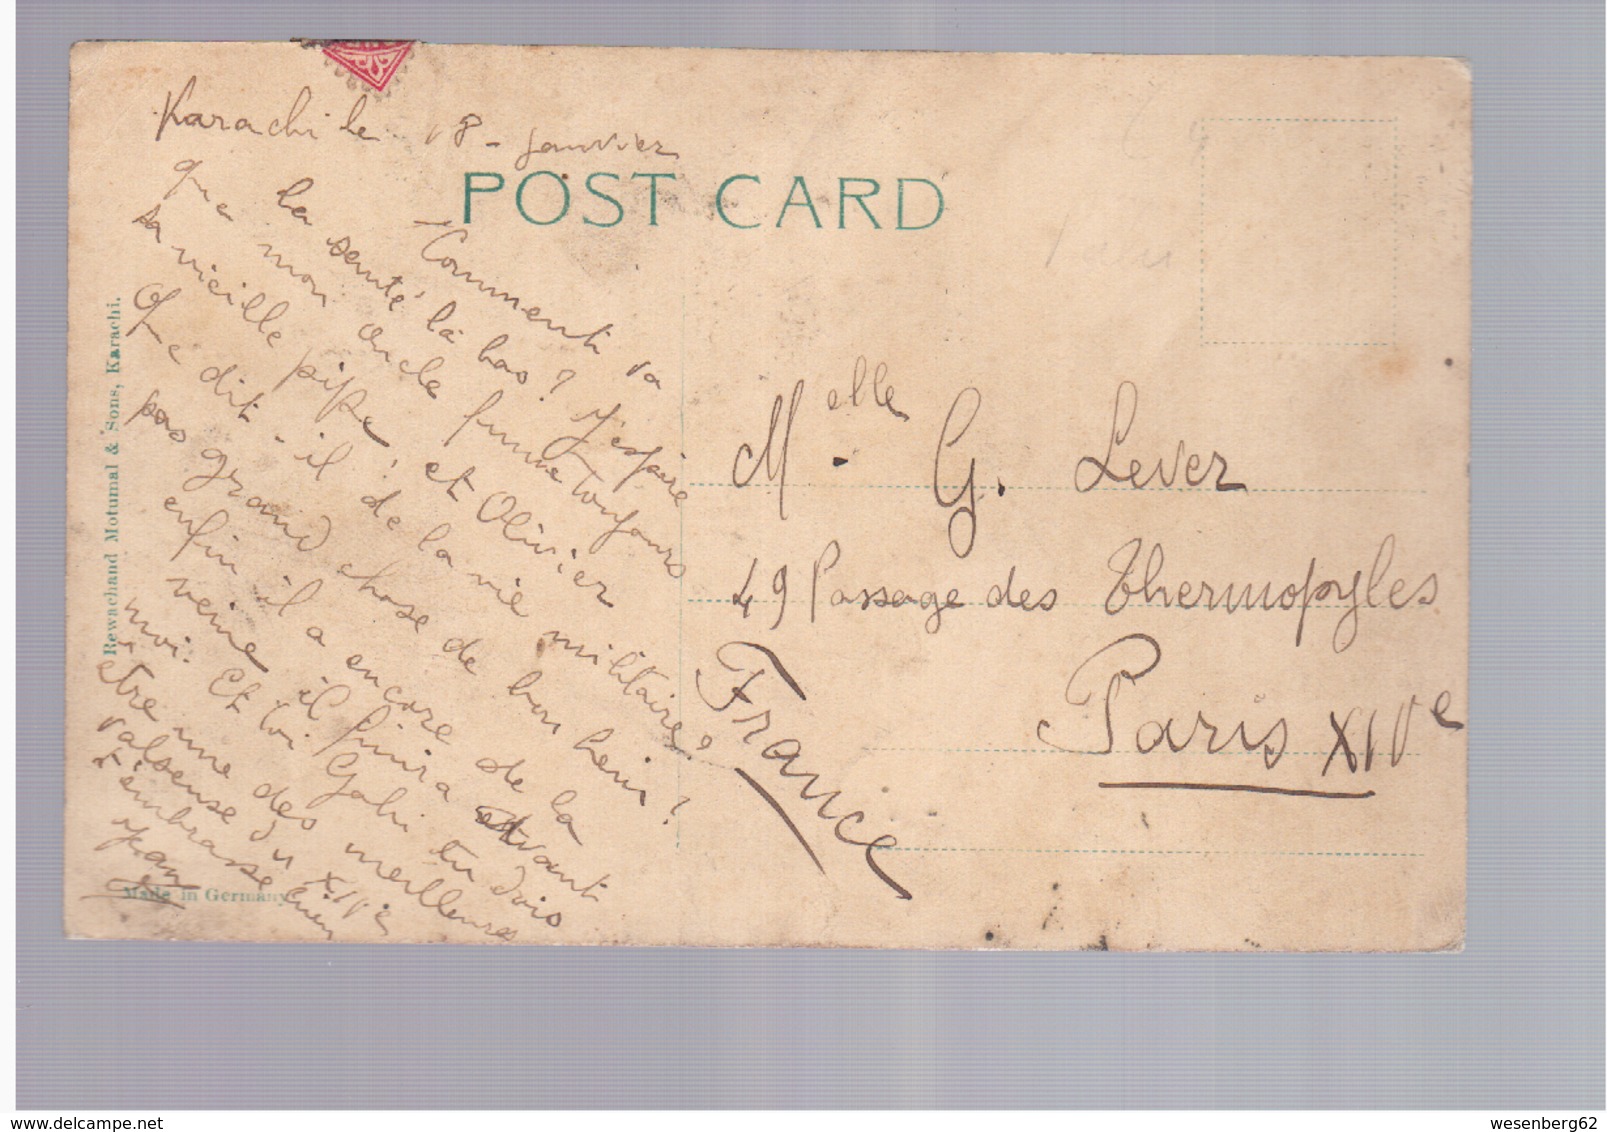 Karachi le 18 - janvier
POST CARD
- Comment va
la santé là bas ? J'espère
que mon oncle fume toujours
sa vieille pipe, et Olivier
Que dit-il de la vie militaire ?
pas grand chose de bon hein ?
enfin il a encore de la
veine il finira avant
moi. Et toi Gabi tu dois
être une des meilleures
valseuse du XIVe
t'embrasse bien
Rewachand Motumal & Sons, Karachi.
Made in Germany
Melle. G. Lever
49 Passage des Thermopyles
Paris XIVe
France
wesenberg62